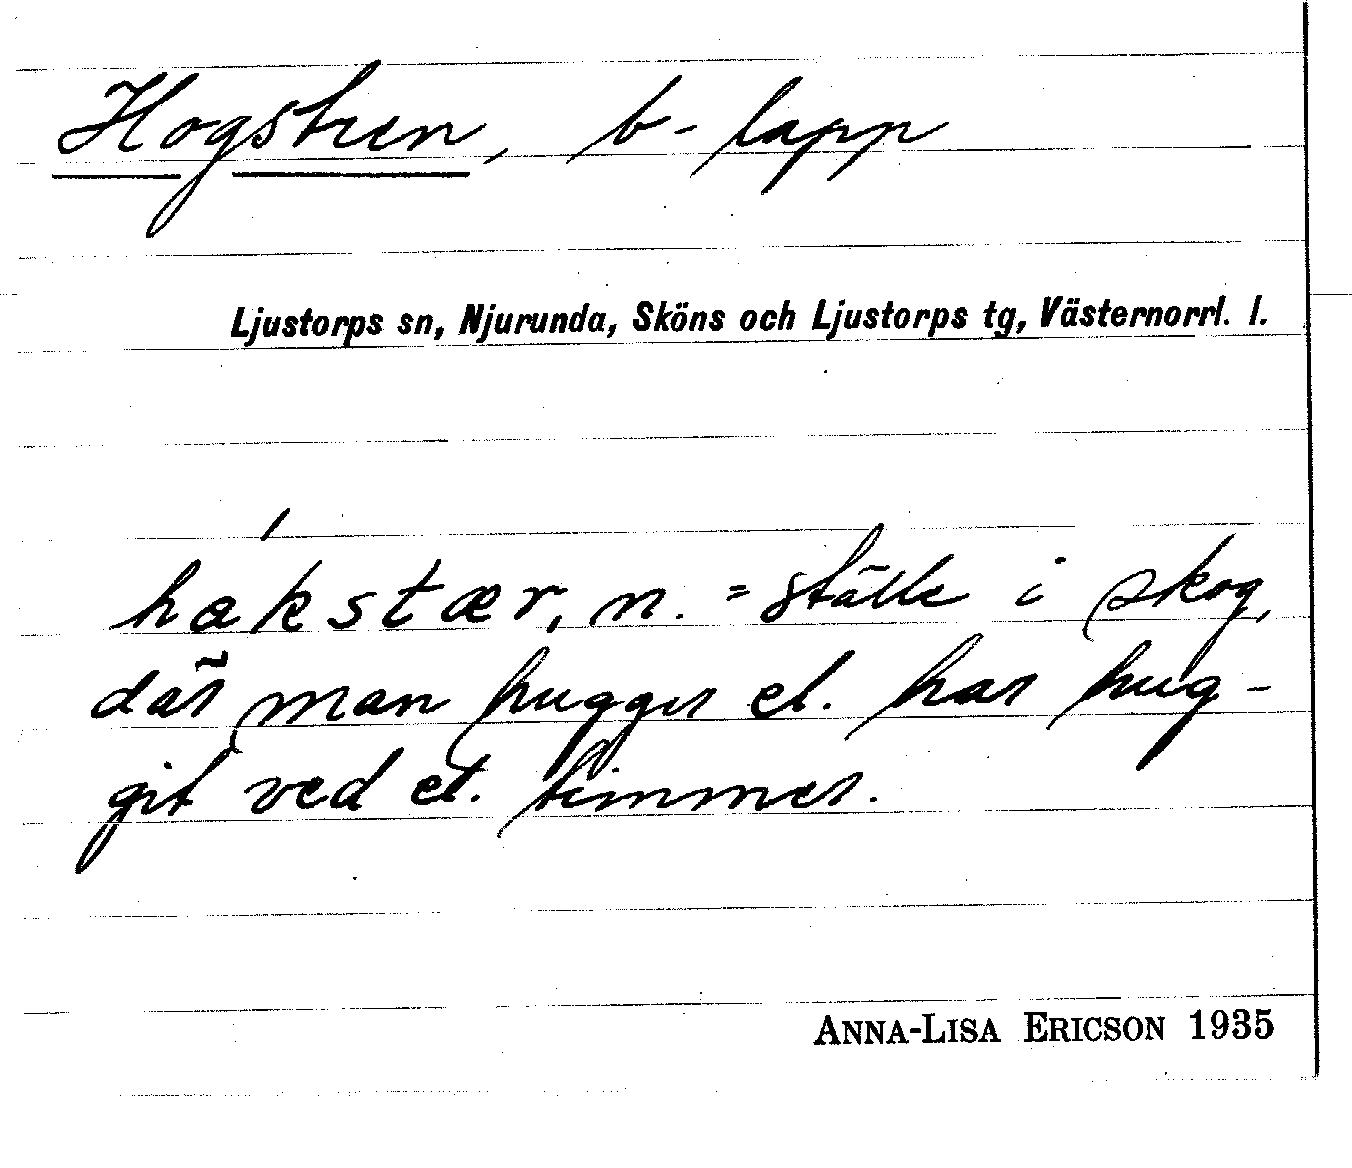 Hogstren, b-lapp
Ljustorps sn, Njurunda, Sköns och Ljustorps tg, Västernorrl. l.
hakstær, n. = ställe i skog,
där man hugger el. har hug-
git ved el. timmer.
ANNA-LISA ERICSON 1935